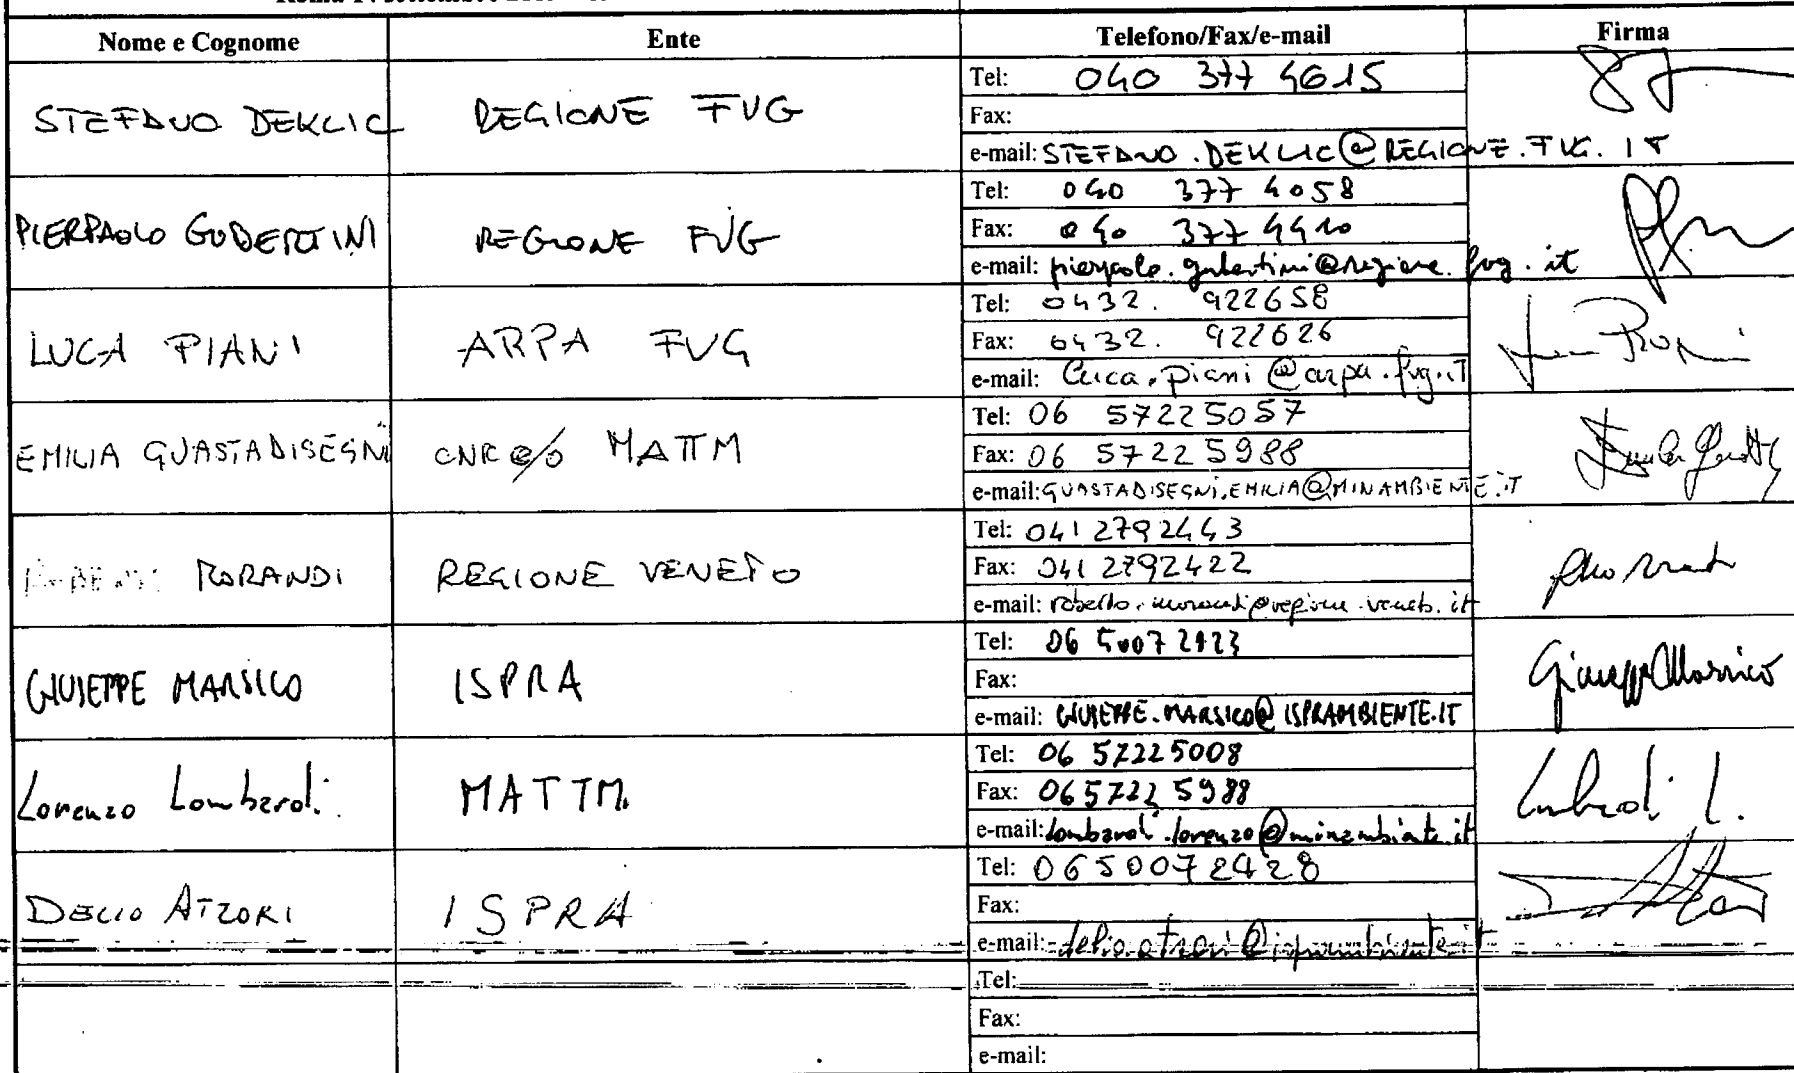 Nome e Cognome Ente Telefono/Fax/e-mail Firma
STEFANO DEKLIC REGIONE FVG
Tel: 040 377 4615
Fax:
e-mail: STEFANO.DEKLIC@REGIONE.FVG.IT
PIERPAOLO GUBERTINI REGIONE FVG
Tel: 040 377 4058
Fax: 040 377 4410
e-mail: pierpaolo.gubertini@regione.fvg.it
LUCA PIANI ARPA FVG
Tel: 0432. 922658
Fax: 0432. 922626
e-mail: luca.piani@arpa.fvg.iT
EMILIA GUASTADISEGNI CNR c/o MATTM
Tel: 06 57225057
Fax: 06 57225988
e-mail: GUASTADISEGNI.EMILIA@MINAMBIENTE.IT
MORANDI REGIONE VENETO
Tel: 041 2792443
Fax: 041 2792422
e-mail: roberto.morandi@regione.veneto.it
GIUSEPPE MARSICO ISPRA Giuseppe Marsico
Tel: 06 5007 2123
Fax:
e-mail: GIUSEPPE.MARSICO@ISPRAMBIENTE.IT
Lorenzo Lombardi MATTM Lombardi L.
Tel: 06 57225008
Fax: 0657225988
e-mail: lombardi.lorenzo@minambiente.it
DELIO ATZORI ISPRA
Tel: 0650072428
Fax:
e-mail: delio.atzori@isprambiente.it
Tel:
Fax:
e-mail: